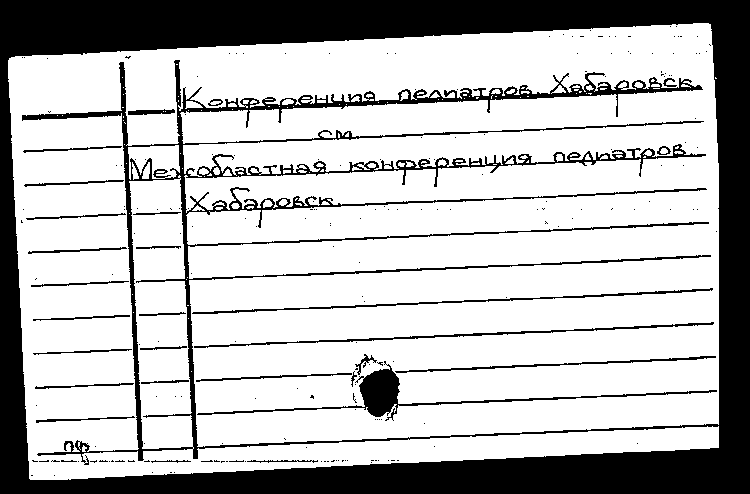 Конференция педиатров. Хабаровск.
см.
Межобластная конференция педиатров.
Хабаровск.